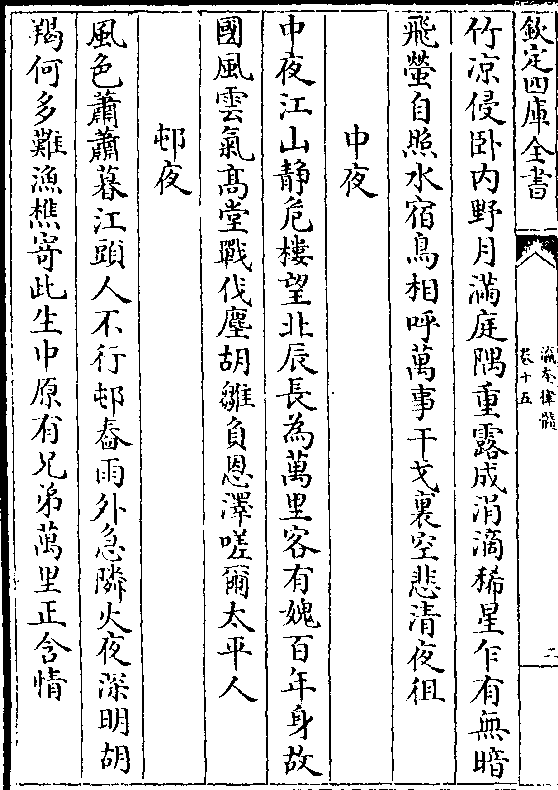 欽定四庫全書
瀛奎律髓
卷十五
二
竹凉侵卧内野月滿庭隅重露成涓滴稀星乍有無暗
飛螢自照水宿鳥相呼萬事干戈裏空悲清夜徂
中夜
中夜江山静危樓望北辰長為萬里客有媿百年身故
國風雲氣髙堂戰伐塵胡雛負恩澤嗟爾太平人
邨夜
風色蕭蕭暮江頭人不行邨舂雨外急隣火夜深明胡
羯何多難漁樵寄此生中原有兄弟萬里正含情